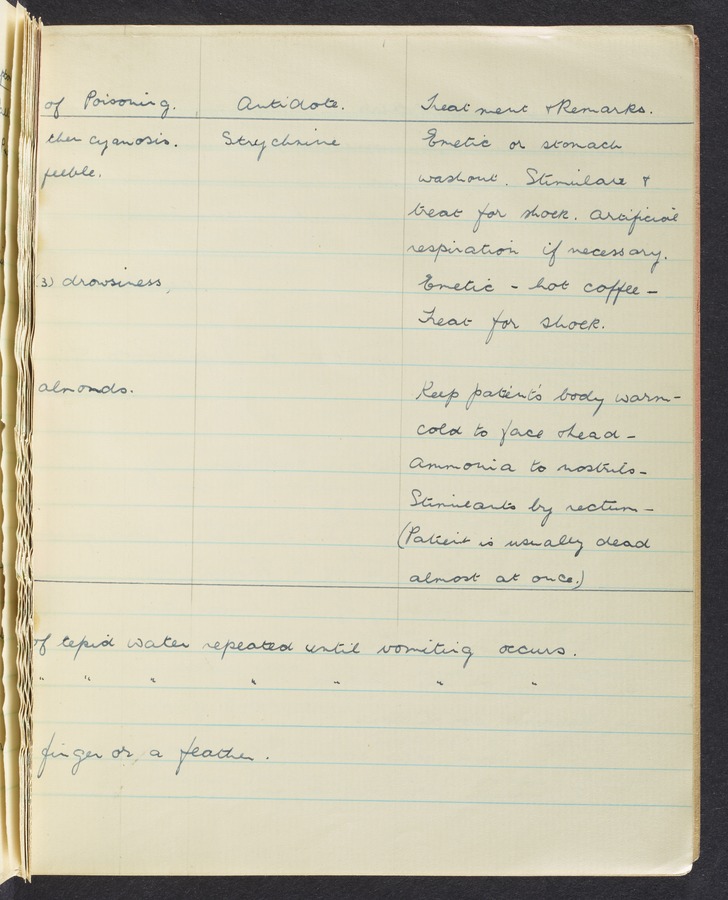 of Poisoning. Antidote. Treatment & Remarks.
then cyanosis. Strychnine Emetic or stomach
feeble. washout. Stimulate &
treat for shock. Artificial
respiration if necessary.
(3) drowsiness, Emetic - hot coffee -
Treat for shock.
almonds. Keep patient's body warm -
cold to face & head -
Ammonia to nostrils -
Stimulants by rectum -
(Patient is usually dead
almost at once.)
of tepid water repeated until vomiting occurs.
" " " " " " "
finger or a feather.